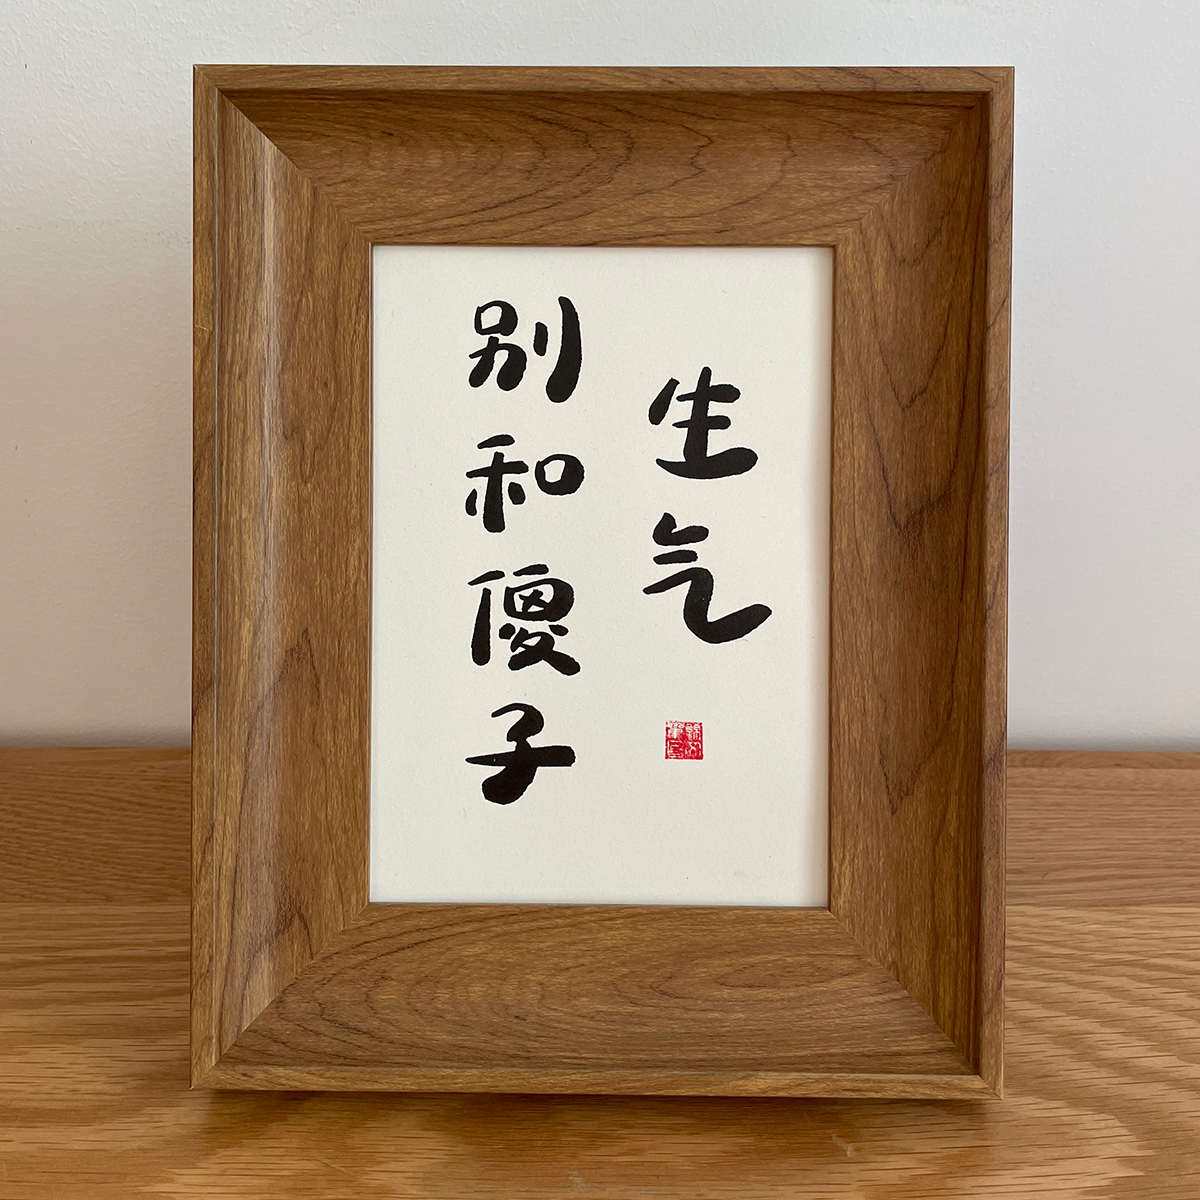 别和傻子
生气